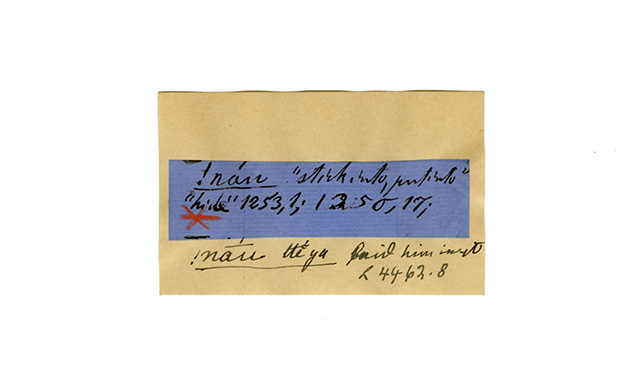 !nán "stick into, put into"
"hide" 1253, 1; 1250, 17;
!nán ttĕ ya laid him in it
L 4462.8